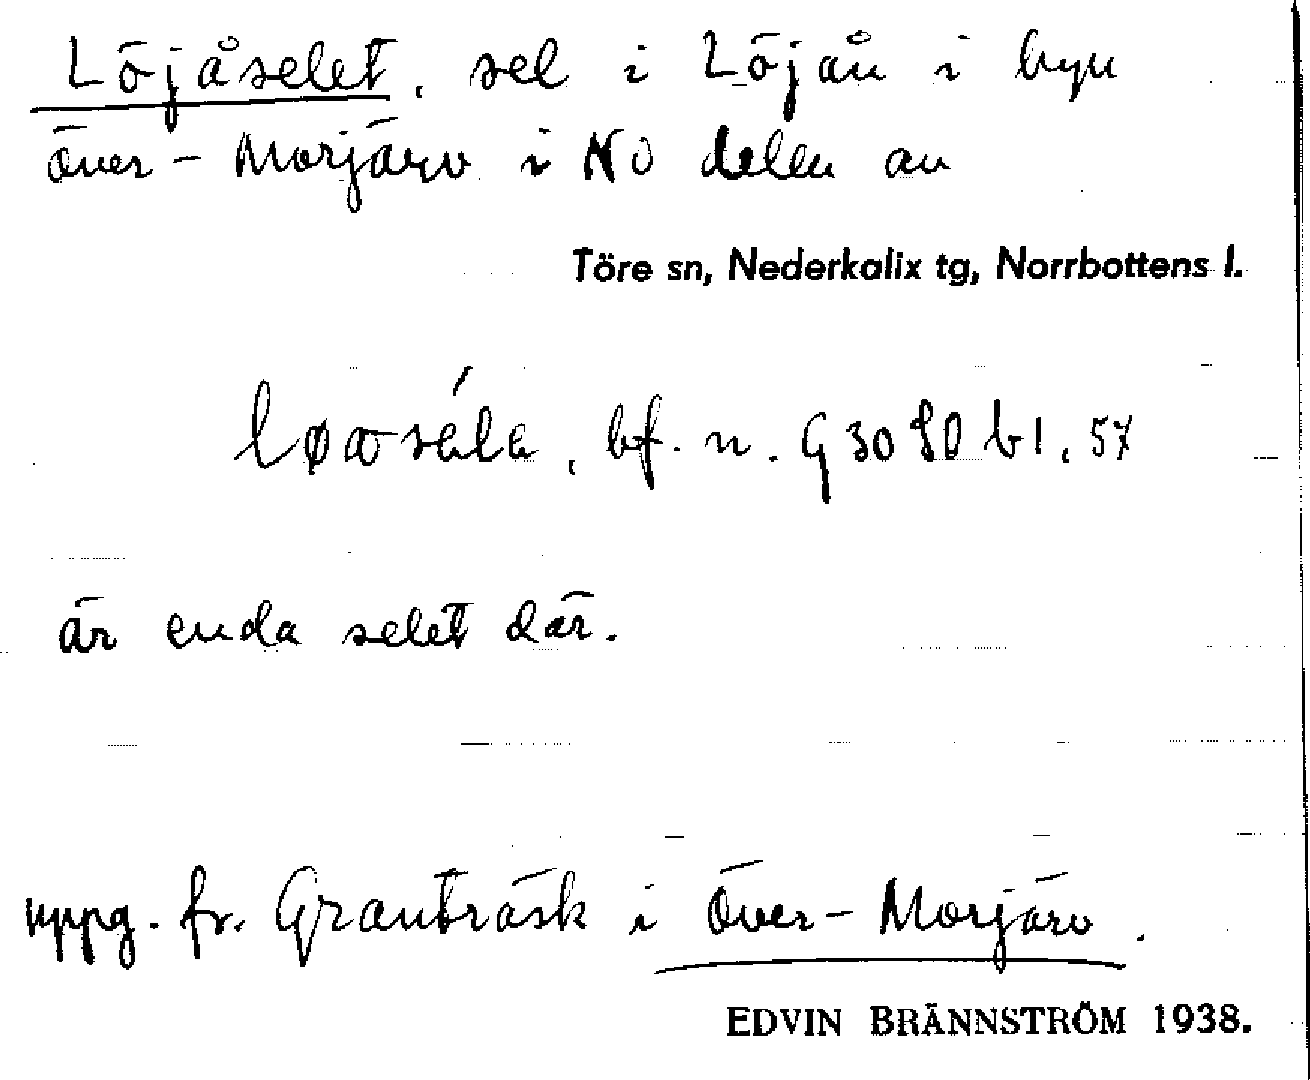 Löjåselet, sel i Löjån i byn
Över-Morjärv i NO delen av
Töre sn, Nederkalix tg, Norrbottens l.
bf. n. G 3080 bl. 57
är enda selet där.
uppg. fr. Granträsk i Över-Morjärv.
EDVIN BRÄNNSTRÖM 1938.